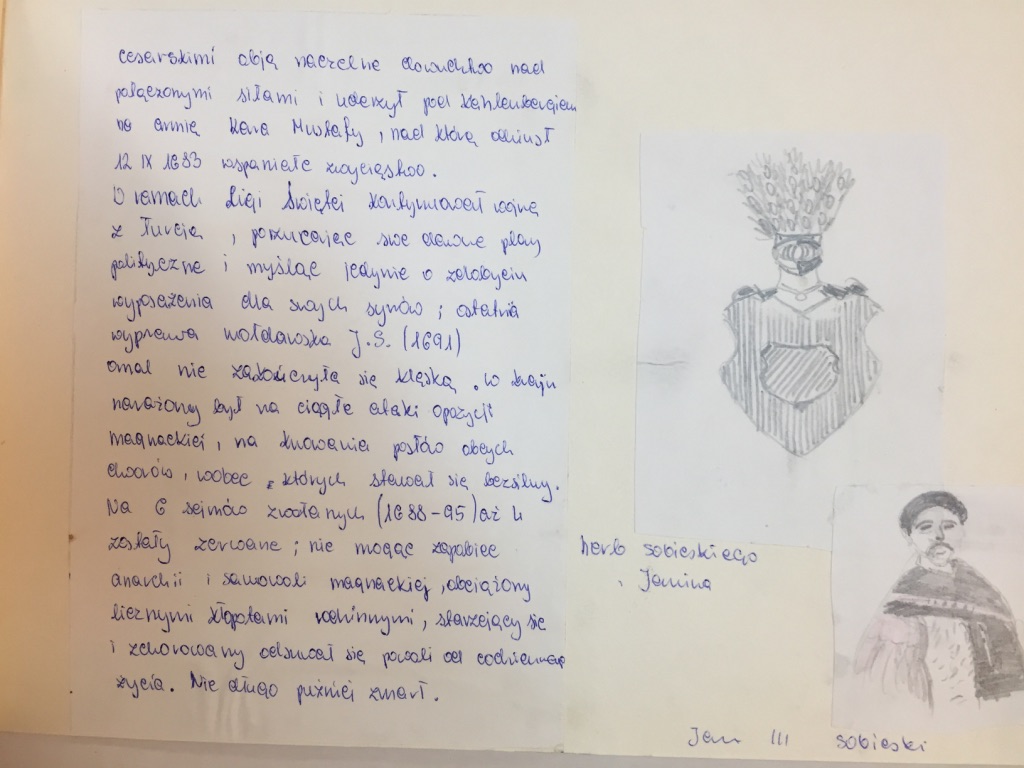 cesarskimi obją naczelne dowództwo nad
połączonymi siłami i uderzył pod Kahlenbergiem
na armię Kara Mustafy, nad którą odniósł
12 IX 1683 wspaniałe zwycięstwo.
W ramach Ligi Świętej kontynuował wojnę
z Turcją, porzucając swe dawne plany
polityczne i myśląc jedynie o zdobyciu
wyposażenia dla swych synów; ostatnia
wyprawa mołdawska J.S. (1691)
omal nie zakończyła się klęską. W kraju
narażony był na ciągłe ataki opozycji
magnackiej, na knowania posłów obcych
dworów, wobec których stawał się bezsilny.
Na 6 sejmów zwołanych (1688-95) aż 4
zostały zerwane; nie mogąc zapobiec
anarchii i samowoli magnackiej, obciążony
licznymi kłopotami rodzinnymi, starzejący się
i schorowany odsuwał się powoli od codziennego
życia. Nie długo puźniej zmarł.
herb sobieskiego
Janina
Jan III sobieski